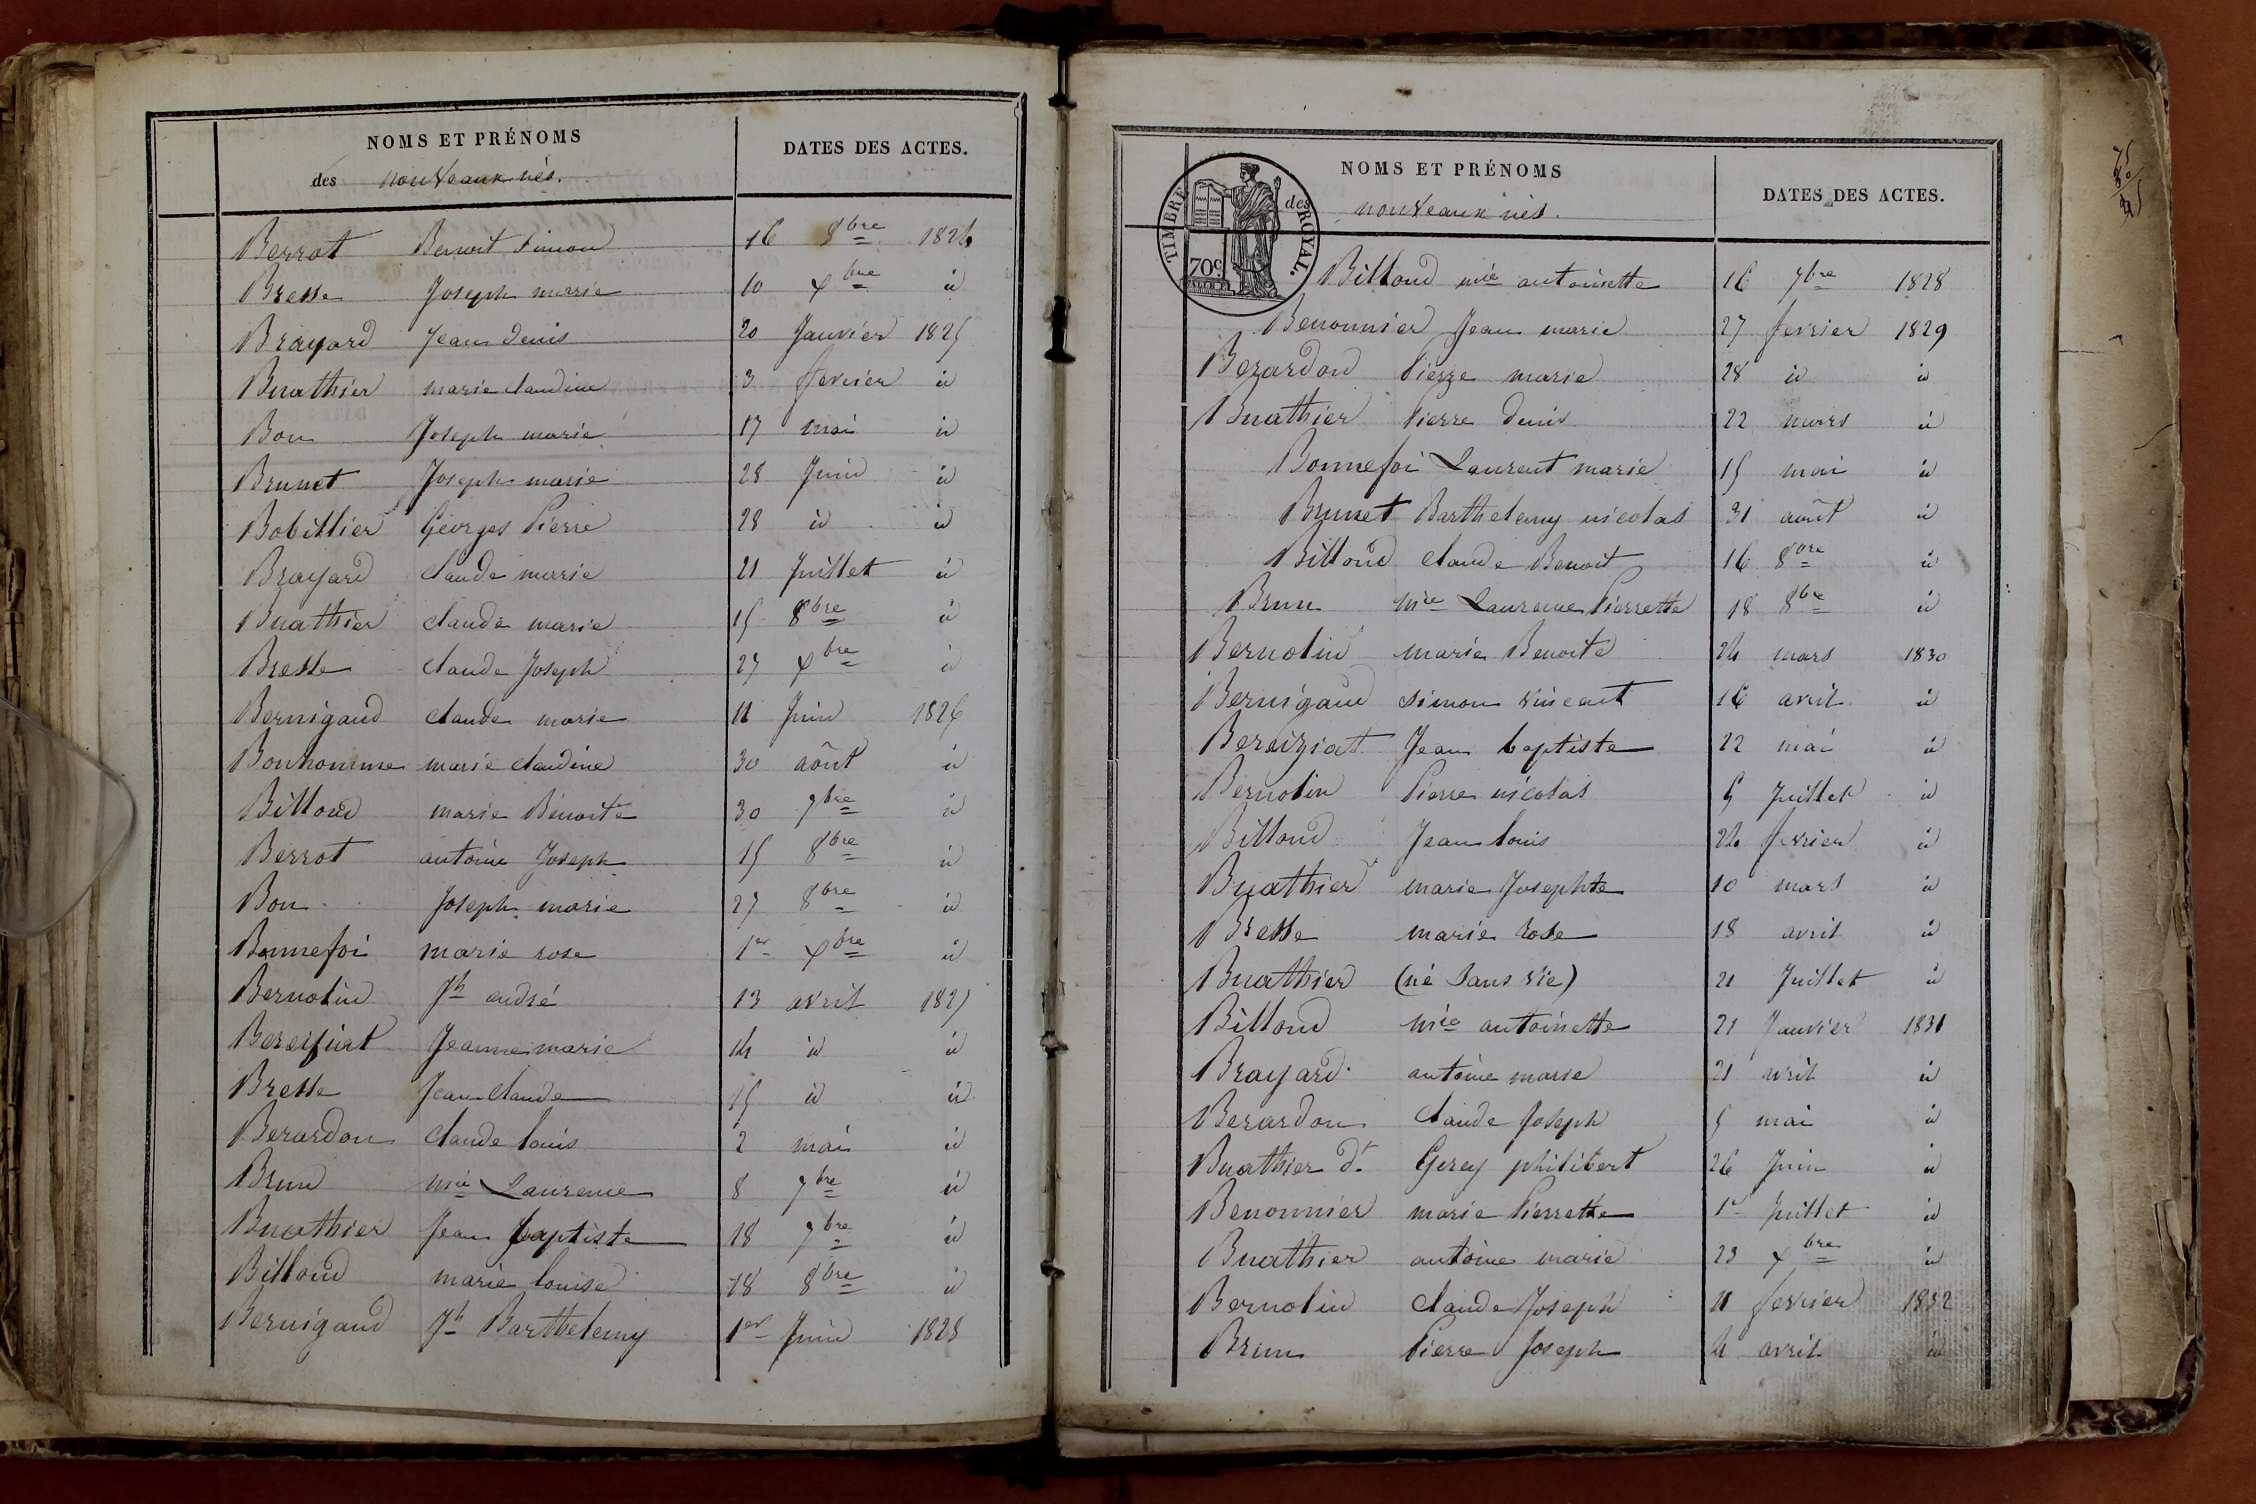 NOMS ET PRÉNOMS
des nouveaux nés.
DATES DES ACTES.
Berrot Benoit Simon 16 8bre 1824
Bresse Joseph marie 10 xbre id
Brayard Jean denis 20 Janvier 1825
Buathier marie claudine 3 fevrier id
Bon Joseph marie 17 mai id
Brunet Joseph marie 28 Juin id
Bobillier Georges Pierre 28 id id
Brayard claude marie 21 Juillet id
Buathier claude marie 15 8bre id
Bresse claude Joseph 27 xbre id
Bernigaud claude marie 11 Juin 1826
Bonhomme marie claudine 30 août id
Billoud marie Benoite 30 7bre id
Berrot antoine Joseph 15 8bre id
Bon Joseph marie 27 8bre id
Bonnefoi marie rose 1er xbre id
Bernolin Jh andré 13 avril 1827
Jeanne marie 14 id id
Bresse Jean claude 15 id id
Berardon claude louis 2 mai id
Brun mie Laurence 8 7bre id
Buathier Jean baptiste 18 7bre id
Billoud marie louise 18 8bre id
Bernigaud Jh Barthelemy 1er Juin 1828
TIMBRE ROYAL.
70c
NOMS ET PRÉNOMS
des nouveaux nés.
DATES DES ACTES.
Billoud mie antoinette 16 7bre 1828
Benonnier Jean marie 27 fevrier 1829
Berardon Pierre marie 28 id id
Buathier Pierre denis 22 mars id
Bonnefoi Laurent marie 15 mai id
Brunet Barthelemy nicolas 31 août id
Billoud claude Benoit 16 8bre id
Brun mie Laurence Pierrette 18 8bre id
Bernolin marie Benoite 24 mars 1830
Bernigaud simon vincent 16 avril id
Bereiziat Jean baptiste 22 mai id
Bernolin Pierre nicolas 5 Juillet id
Billoud Jean louis 24 fevrier id
Buathier marie Josephte 10 mars id
Bresse marie rose 18 avril id
Buathier (né sans vie) 21 Juillet id
Billoud mie antoinette 21 Janvier 1831
Brayard antoine marie 21 avril id
Berardon claude Joseph 5 mai id
Buathier dt Gerey philibert 26 Juin id
Benonnier marie Pierrette 1er Juillet id
Buathier antoine marie 23 xbre id
Bernolin claude Joseph 11 fevrier 1832
Brun Pierre Joseph 4 avril id